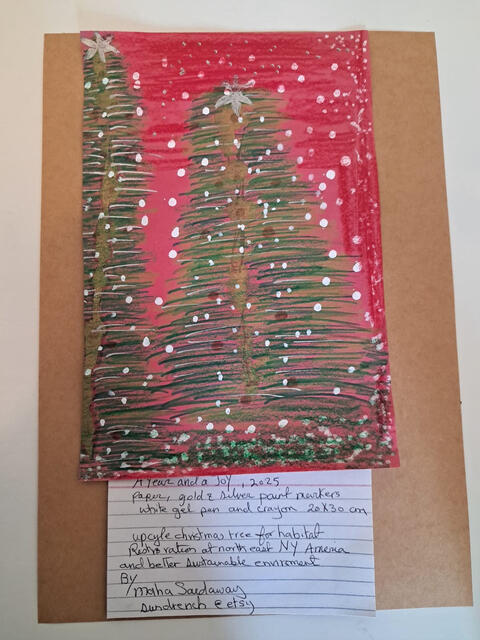 A Year and a Joy, 2025
paper, gold & silver paint markers
white gel pen and crayon 20X30 cm
upcyle christmas tree for habitat
Restoration at north east NY America
and better sustainable enviroment
By
Maha Saedaway
sundrench @ etsy